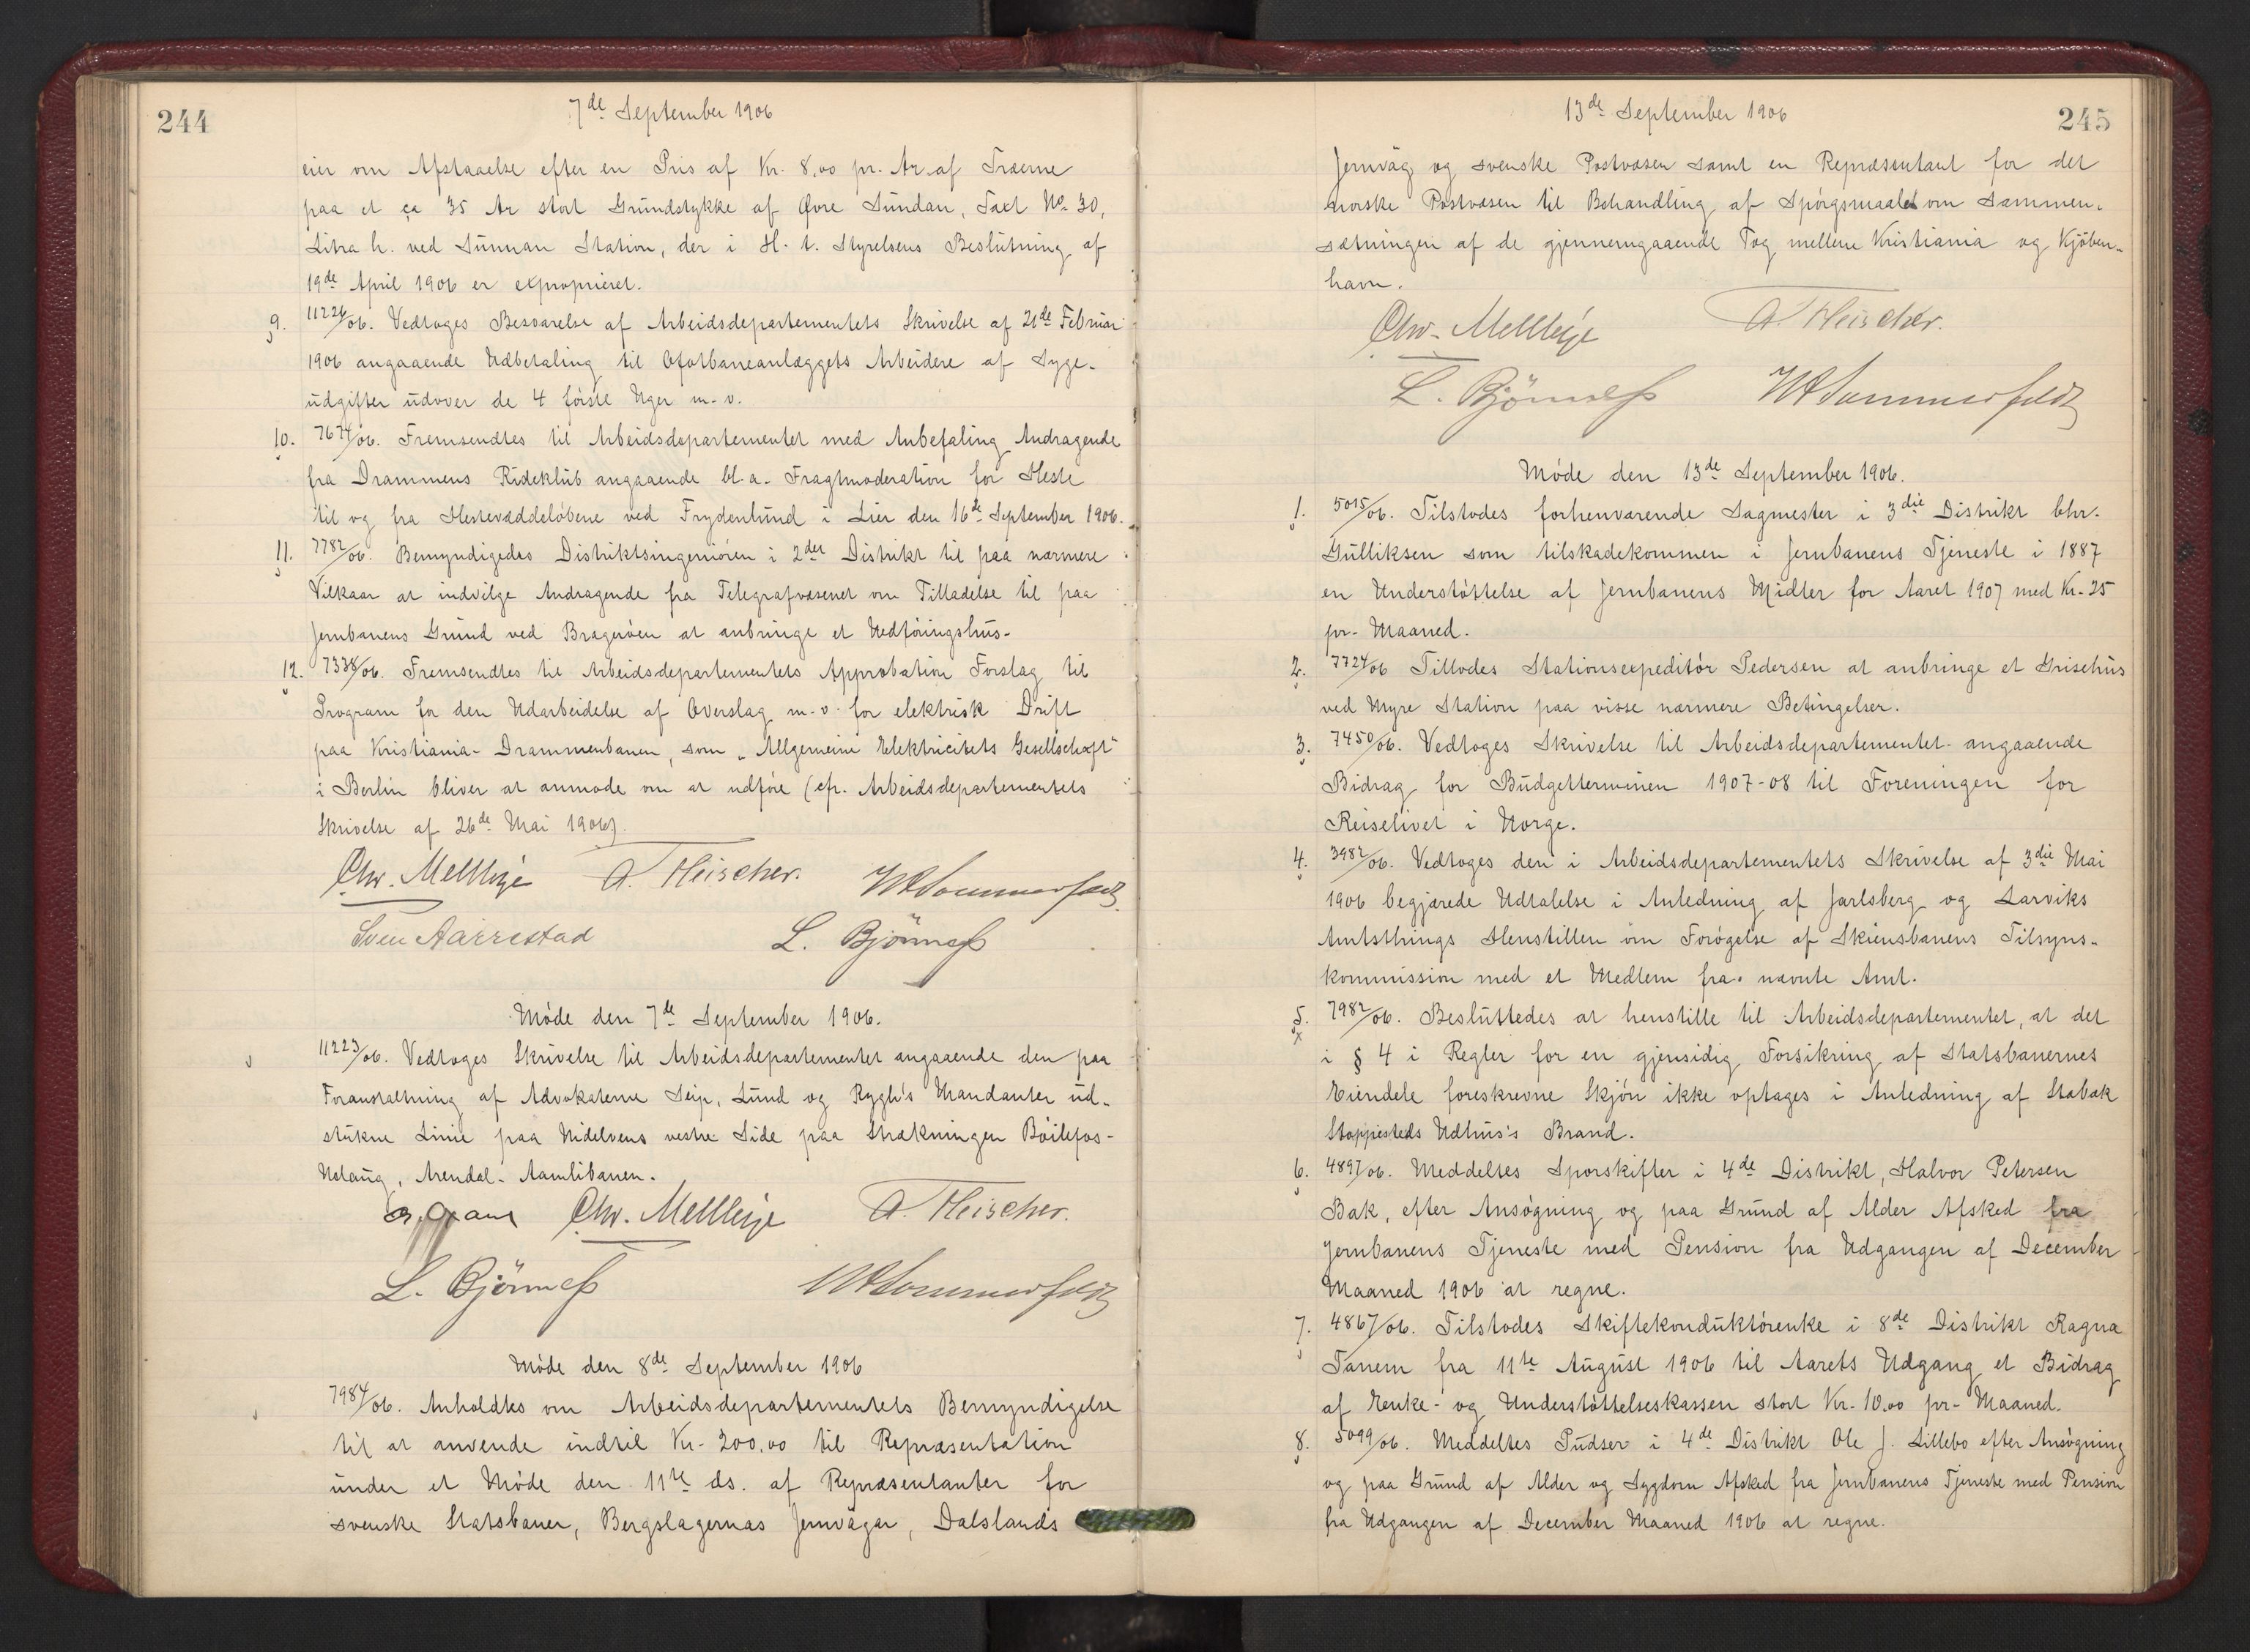 244
7de September 1906
eier om Afstaaelse efter en Pris af Kr. 8,00 pr. Ar af Træerne
paa et ca 35 Ar stort Grundstykke af Øvre Sundan, Taxt No. 30,
Litra h. ved Sunnan Station, der i H. t. Styrelsens Beslutning af
19de April 1906 er exproprieret.
9. 11226/06. Vedtoges Besvarelse af Arbeidsdepartementets Skrivelse af 21de Februar
1906 angaaende Udbetaling til Ofotbaneanlæggets Arbeidere af Syge-
udgifter udover de 4 første Uger m. v.
10. 7674/06. Fremsendtes til Arbeidsdepartementet med Anbefaling Andragende
fra Drammens Rideklub angaaende bl. a. Fragtmoderation for Heste
til og fra Hestevæddeløbene ved Frydenlund i Lier den 16de September 1906.
11. 7782/06. Bemyndigedes Distriktsingeniøren i 2det Distrikt til paa nærmere
Vilkaar at indvilge Andragende fra Telegrafvæsenet om Tilladelse til paa
Jernbanens Grund ved Bragerøen at anbringe et Nedføringshus.
12. 7338/06. Fremsendtes til Arbeidsdepartementets Approbation Forslag til
Program for den Udarbeidelse af Overslag m. v. for elektrisk Drift
paa Kristiania-Drammenbanen, som "Allgemeine Elektricitets Gesellschaft"
i Berlin bliver at anmode om at udføre (cfr. Arbeidsdepartementets
Skrivelse af 26de Mai 1906).
Chr. Mellbye A. Fleischer. W Sommerfeldt
Sven Aarrestad L. Bjørnneß
Møde den 7de September 1906.
11223/06. Vedtoges Skrivelse til Arbeidsdepartementet angaaende den paa
Foranstaltning af Advokaterne Seip, Lund og Rygh's Mandanter ud-
stukne Linie paa Nidelvens vestre Side paa Strækningen Bøilefos-
Nelaug, Arendal-Aamlibanen.
Chr. Mellbye A. Fleischer.
L. Bjørnneß W Sommerfeldt
Møde den 8de September 1906
7984/06. Anholdtes om Arbeidsdepartementets Bemyndigelse
til at anvende indtil Kr. 200,00 til Repræsentation
under et Møde den 11te ds. af Repræsentanter for
svenske Statsbaner, Bergslagernas Jernvägar, Dalslands
13de September 1906
245
Jernväg og svenske Postvæsen samt en Repræsentant for det
norske Postvæsen til Behandling af Spørgsmaalet om Sammen-
sætningen af de gjennemgaaende Tog mellem Kristiania og Kjøben-
havn.
Chr. Mellbye A. Fleischer.
L. Bjørnneß W Sommerfeldt
Møde den 13de September 1906.
1. 5015/06. Tilstodes forhenværende Sagmester i 3die Distrikt Chr.
Gulliksen som tilskadekommen i Jernbanens Tjeneste i 1887
en Understøttelse af Jernbanens Midler for Aaret 1907 med Kr. 25
pr. Maaned.
2. 7724/06 Tillodes Stationsexpeditør Pedersen at anbringe et Grisehus
ved Myre Station paa visse nærmere Betingelser.
3. 7450/06. Vedtoges Skrivelse til Arbeidsdepartementet angaaende
Bidrag for Budgetterminen 1907-08 til Foreningen for
Reiselivet i Norge.
4. 3982/06. Vedtoges den i Arbeidsdepartementets Skrivelse af 3die Mai
1906 begjærede Udtalelse i Anledning af Jarlsberg og Larviks
Amtsthings Henstillen om Forøgelse af Skiensbanens Tilsyns-
kommission med et Medlem fra nævnte Amt.
5. 7982/06. Besluttedes at henstille til Arbeidsdepartementet, at det
x
i § 4 i Regler for en gjensidig Forsikring af Statsbanernes
Eiendele foreskrevne Skjøn ikke optages i Anledning af Stabæk
Stoppesteds Udhus's Brand.
6. 4897/06. Meddeltes Sporskifter i 4de Distrikt, Halvor Petersen
Bak, efter Ansøgning og paa Grund af Alder Afsked fra
Jernbanens Tjeneste med Pension fra Udgangen af December
Maaned 1906 at regne.
7. 4867/06. Tilstodes Skiftekonduktørenke i 8de Distrikt Ragna
Tanem fra 11te August 1906 til Aarets Udgang et Bidrag
af Enke- og Understøttelseskassen stort Kr. 10,00 pr. Maaned.
8. 5099/06. Meddeltes Pudser i 4de Distrikt Ole J. Lillebo efter Ansøgning
og paa Grund af Alder og Sygdom Afsked fra Jernbanens Tjeneste med Pension
fra Udgangen af December Maaned 1906 at regne.